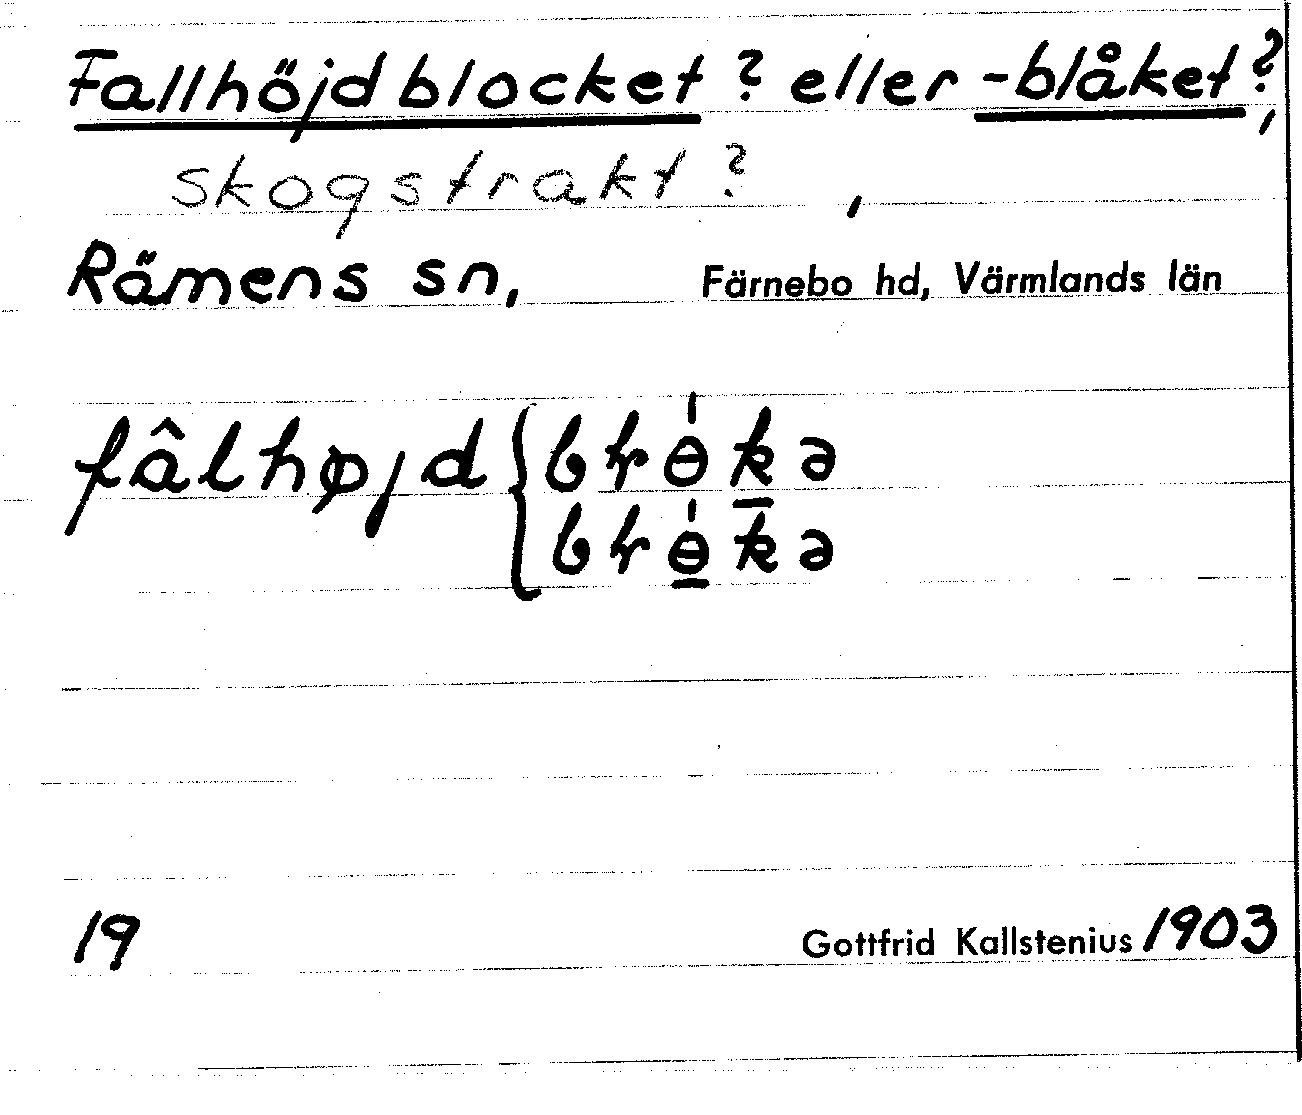 Fallhöjdblocket? eller -blåket?,
skogstrakt?,
Rämens sn, Färnebo hd, Värmlands län
fâlhøjd { bɽɵ́k̲ə
bɽɵ̲́kə
19 Gottfrid Kallstenius 1903